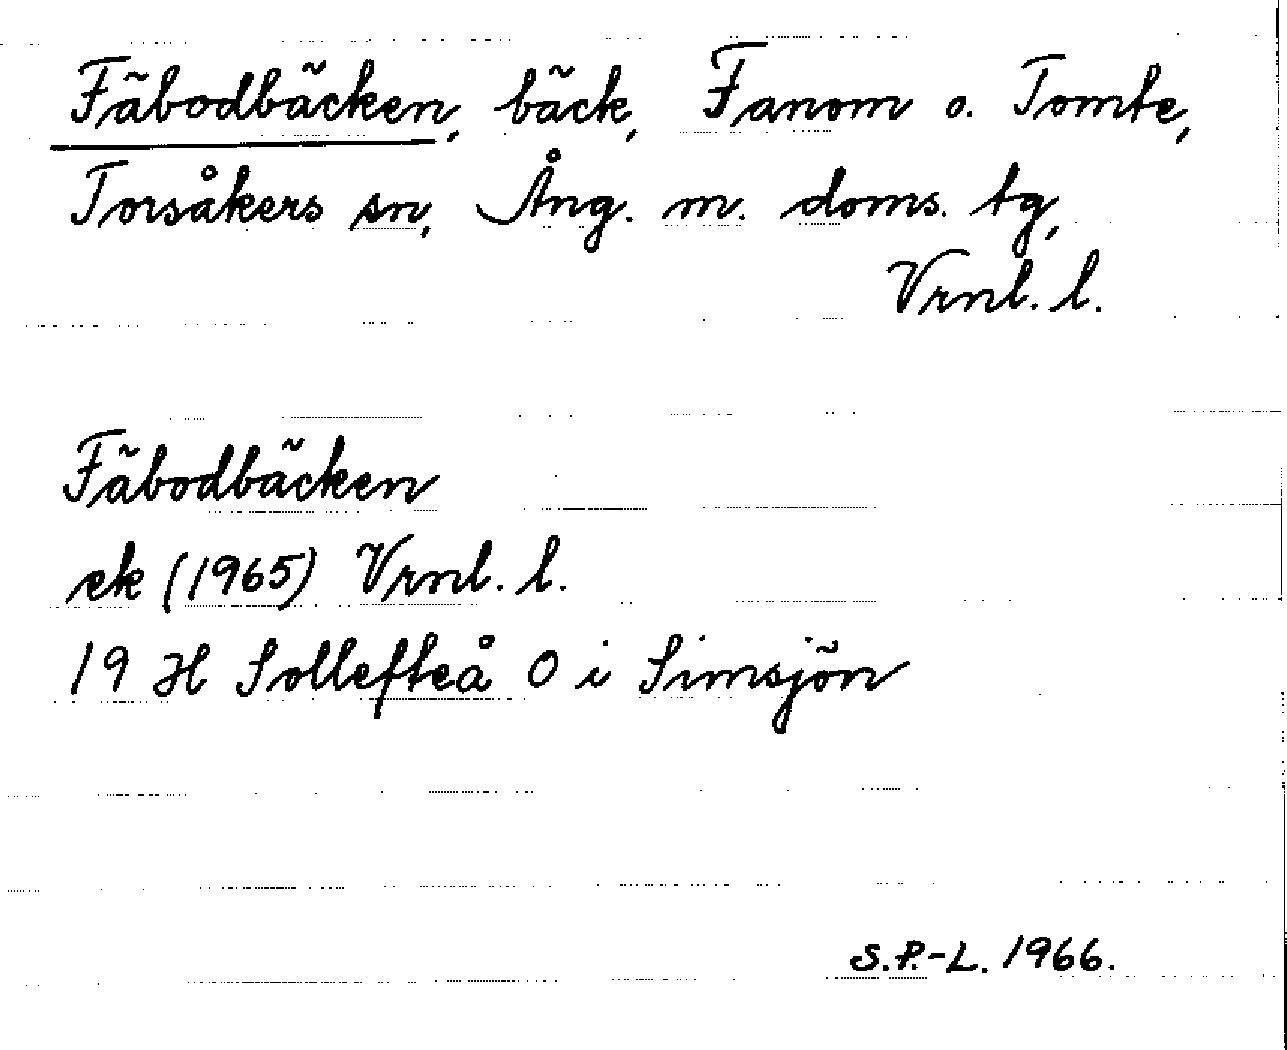 Fäbodbäcken, bäck, Fanom o. Tomte,
Torsåkers sn, Ång. m. doms. tg,
Vrnl. l.
Fäbodbäcken
ek (1965) Vrnl. l.
19 H Sollefteå O i Simsjön
S.P.-L. 1966.